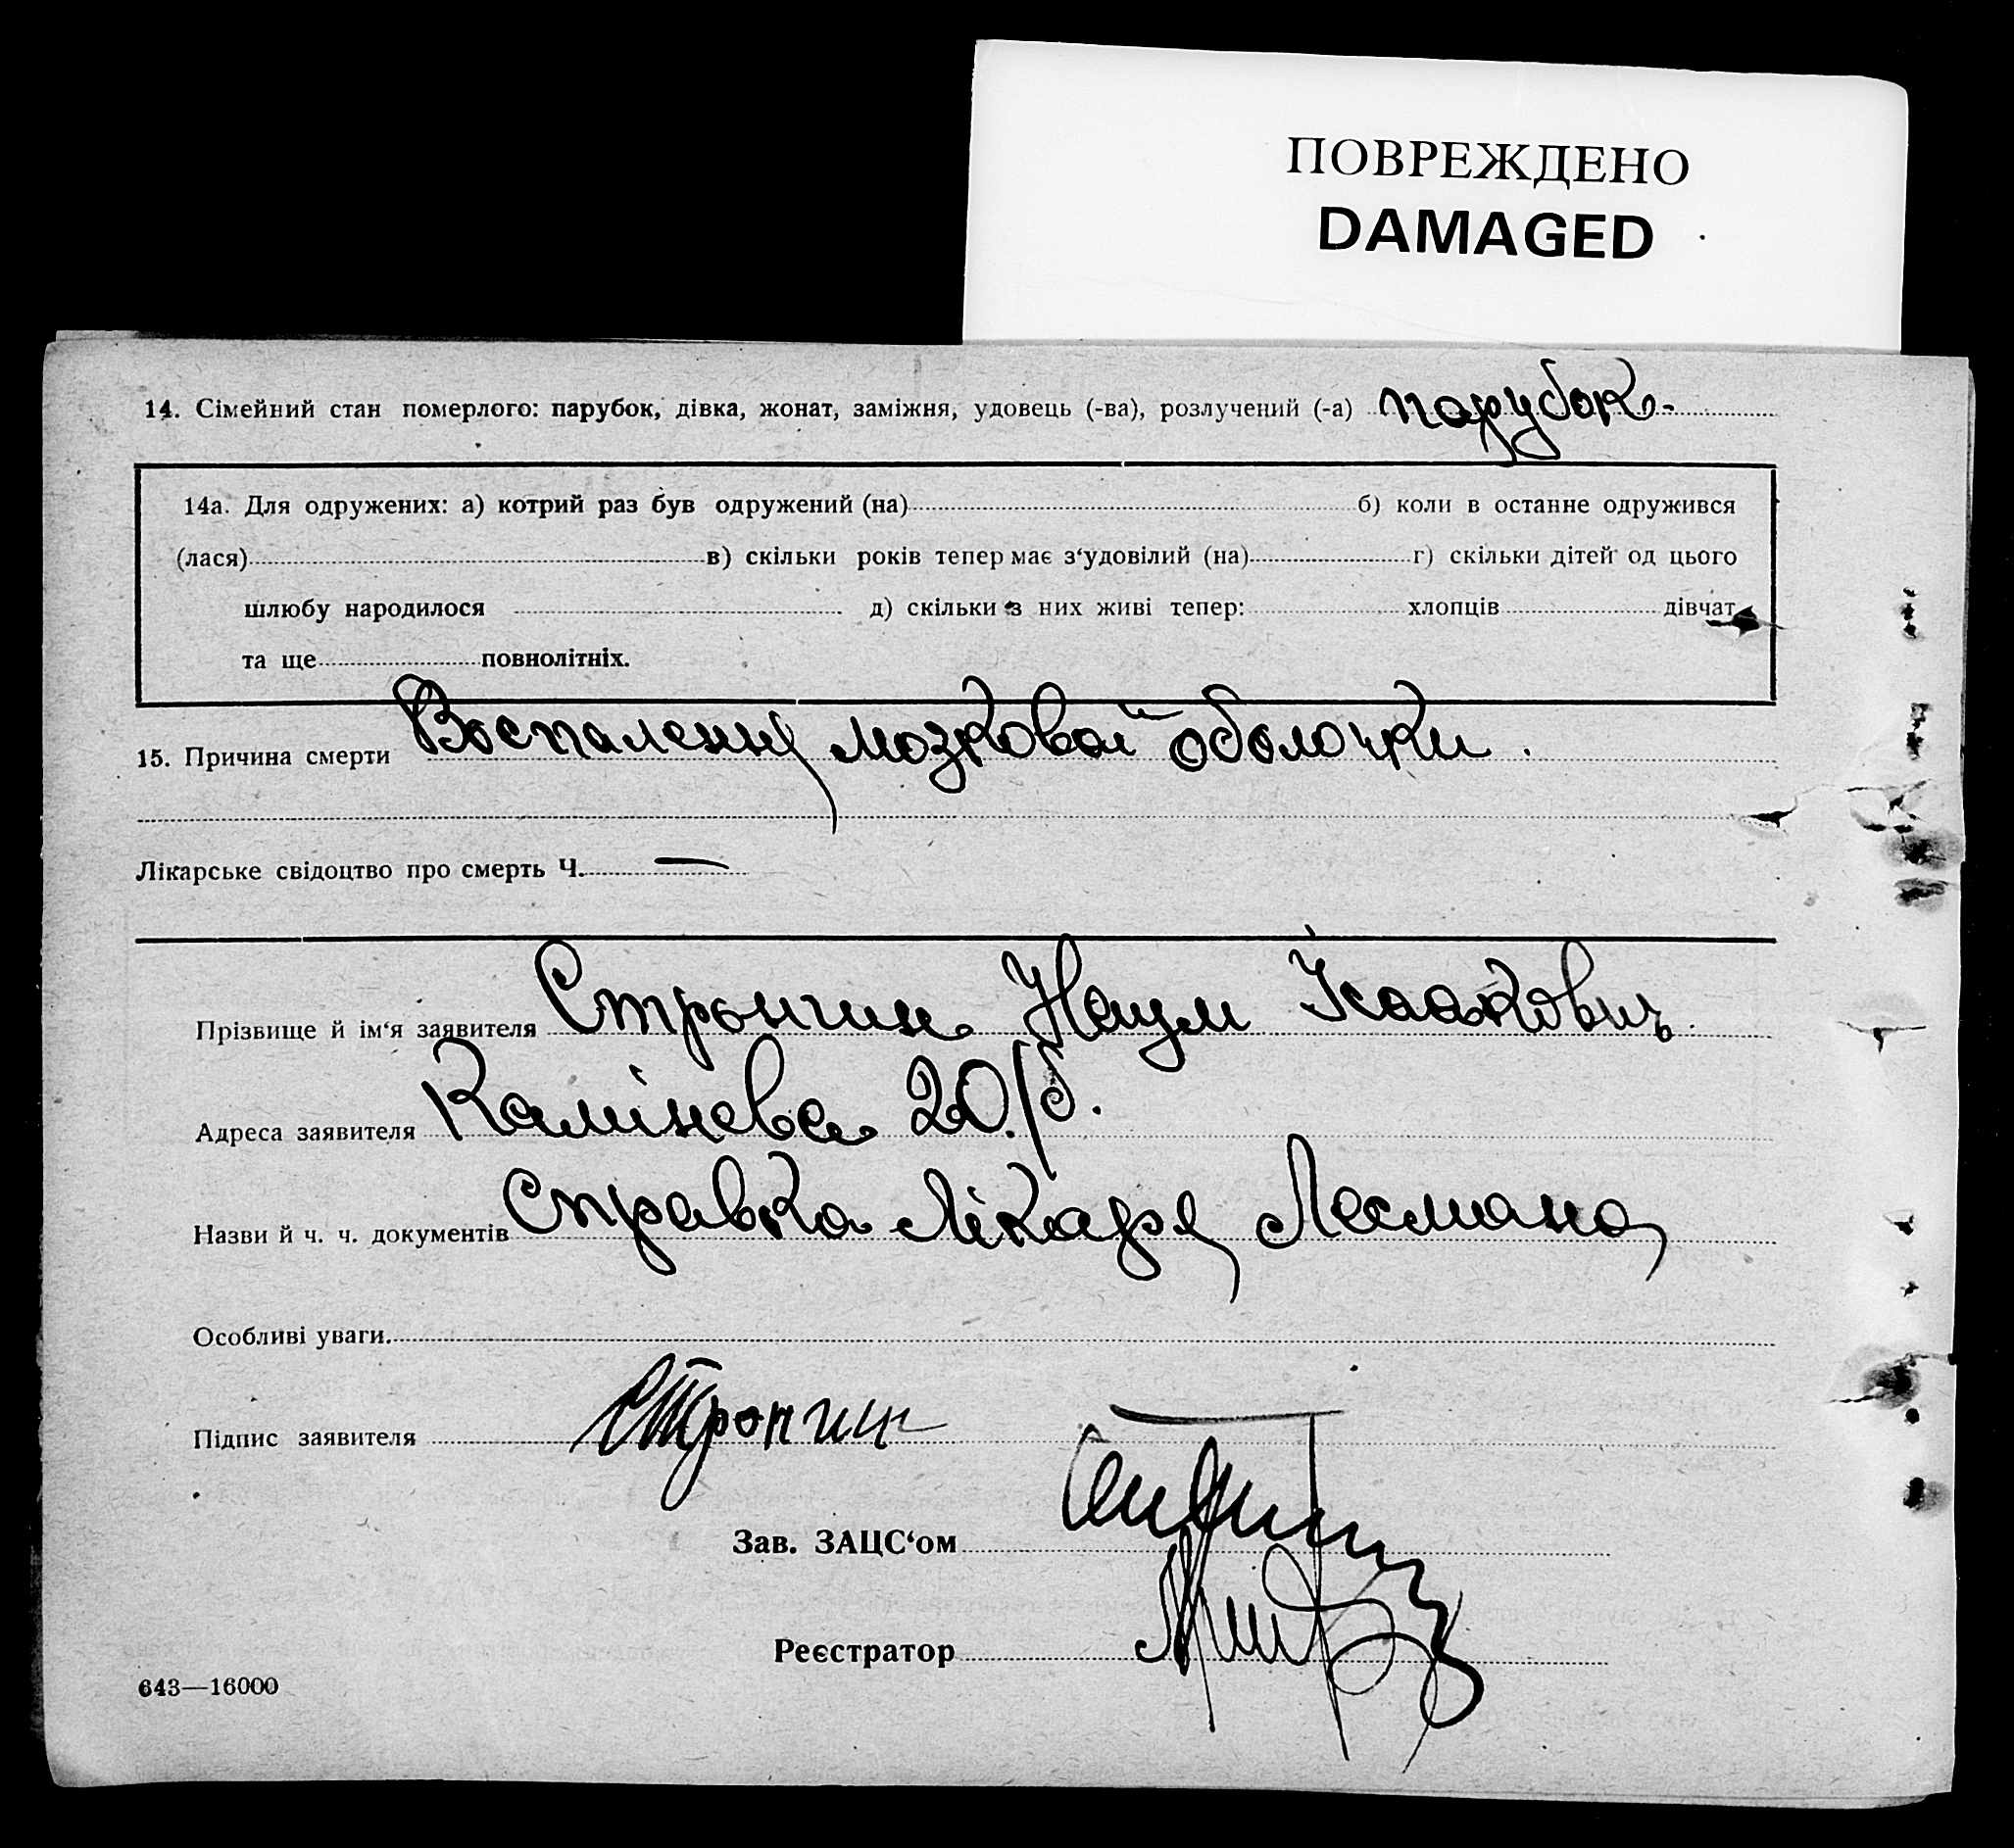 ПОВРЕЖДЕНО
DAMAGED
14. Сімейний стан померлого: парубок, дівка, жонат, заміжня, удовець (-ва), розлучений (-а) парубок
14а. Для одружених: а) котрий раз був одружений (на) б) коли в останне одружився
(лася) в) скільки років тепер має з‘удовілий (на) г) скільки дітей од цього
шлюбу народилося д) скільки з них живі тепер: хлопців дівчат
та ще повнолітніх.
15. Причина смерти Воспаления мозковой оболочки.
Лікарське свідоцтво про смерть Ч. —
Прізвище й ім‘я заявителя Стронгин Наум Ісаакович
Адреса заявителя Камінева 20/5.
Назви й ч. ч. документів Справка лікаря
Особливі уваги
Підпис заявителя Стронгин
Зав. ЗАЦС‘ом
Реєстратор
643—16000